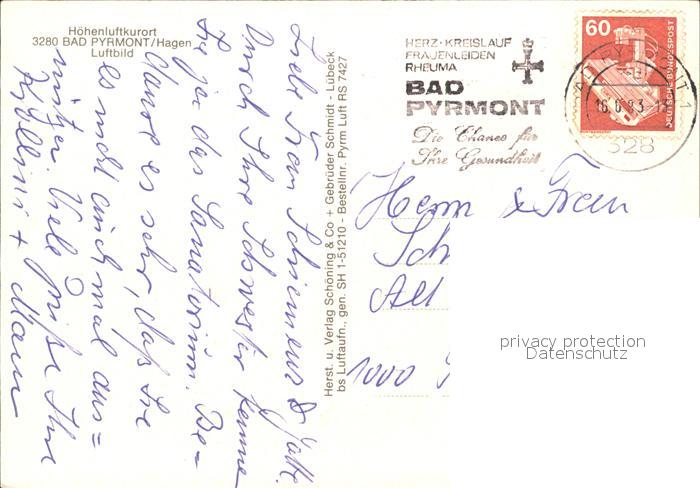 Höhenluftkurort
3280 BAD PYRMONT/Hagen
Luftbild
Liebe Frau Schiemeur & Gatte.
Durch Ihre Schwester kenne
Sie ja das Sanatorium. Be=
daure es sehr, daß Sie
es nicht einmal aus=
nützen. Viele Grüße Ihre
+ Mann
Herst. u. Verlag Schöning & Co + Gebrüder Schmidt - Lübeck
bs Luftaufn., gen. SH 1-51210 - Bestellnr. Pyrm Luft RS 7427
HERZ-KREISLAUF
FRAUENLEIDEN
RHEUMA
BAD
PYRMONT
Die Chance für
Ihre Gesundheit
60
DEUTSCHE BUNDESPOST
328
Herrn & Frau
Sch
Alt
1000
privacy protection
Datenschutz